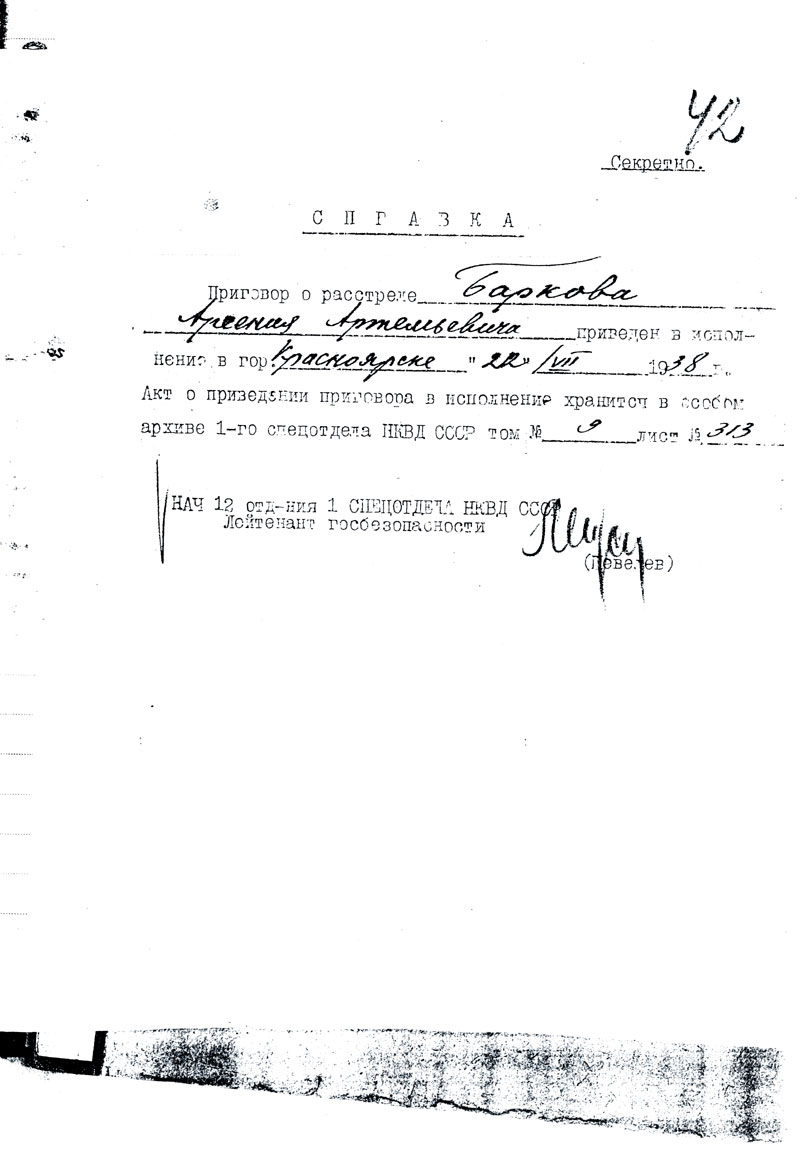 42
Секретно.
СПРАВКА
Приговор о расстреле Баркова
Арсения Артемьевича приведен в испол-
нение в гор. Красноярске "22" /VII 1938 г.
Акт о приведении приговора в исполнение хранится в особом
архиве 1-го спецотдела НКВД СССР том № 9 лист № 313
НАЧ 12 отд-ния 1 СПЕЦОТДЕЛА НКВД СССР
Лейтенант госбезопасности